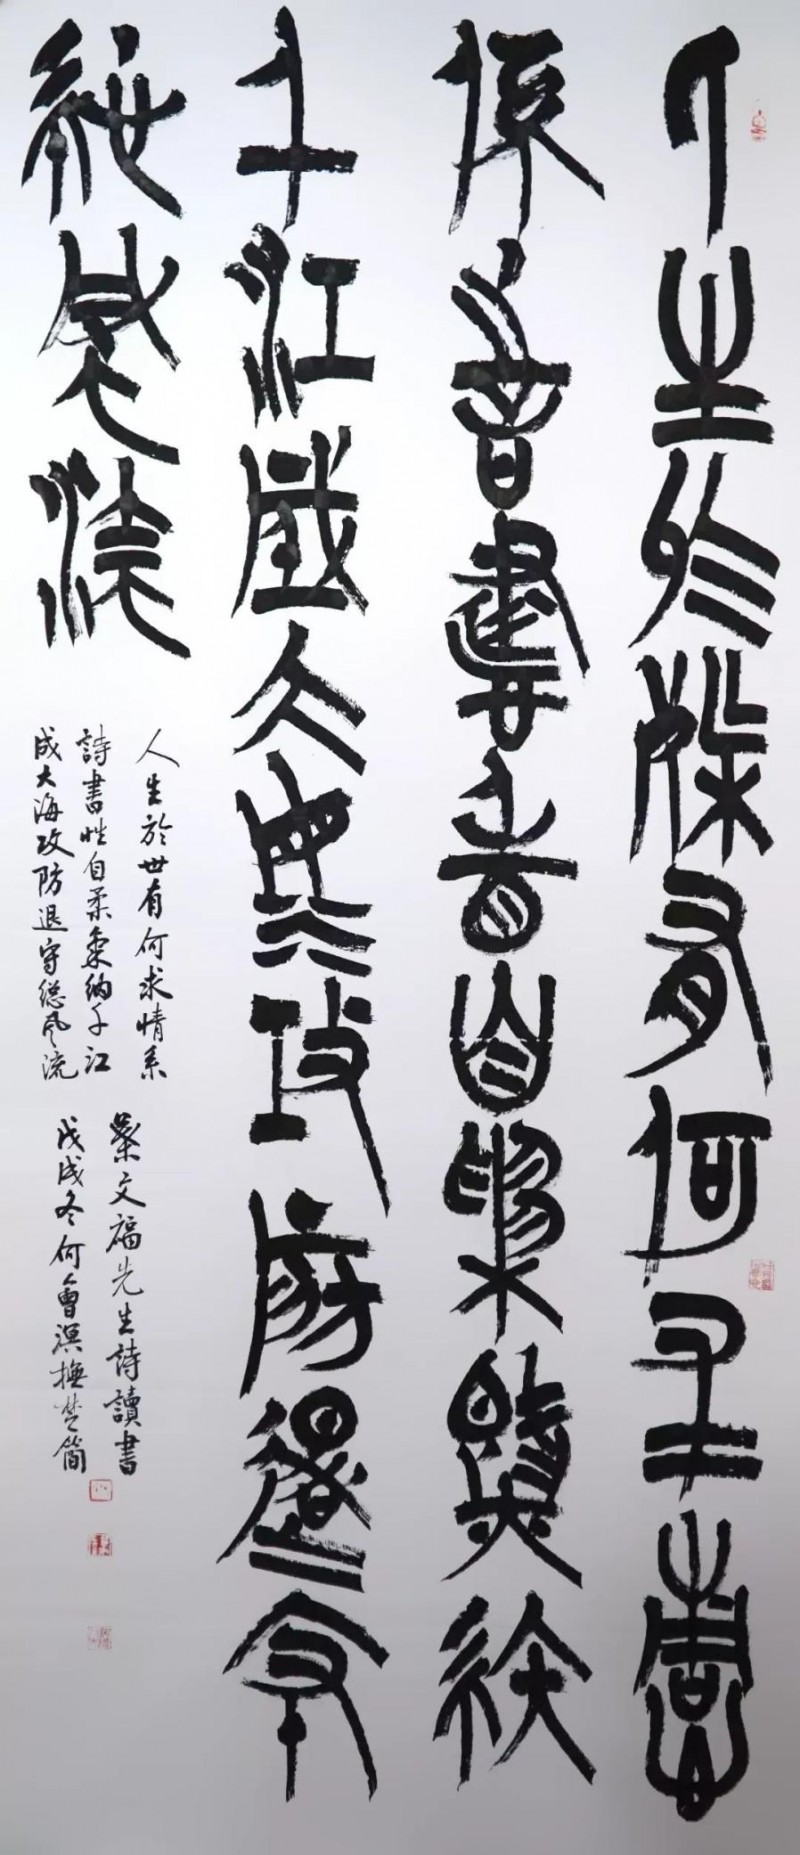 人生於世有何求情
係詩書性自柔氣納
千江成大海攻防退守
總風流
人生於世有何求情系
詩書性自柔氣納千江
成大海攻防退守総風流
蔡文福先生詩讀書
戊戌冬何會溟撫楚簡